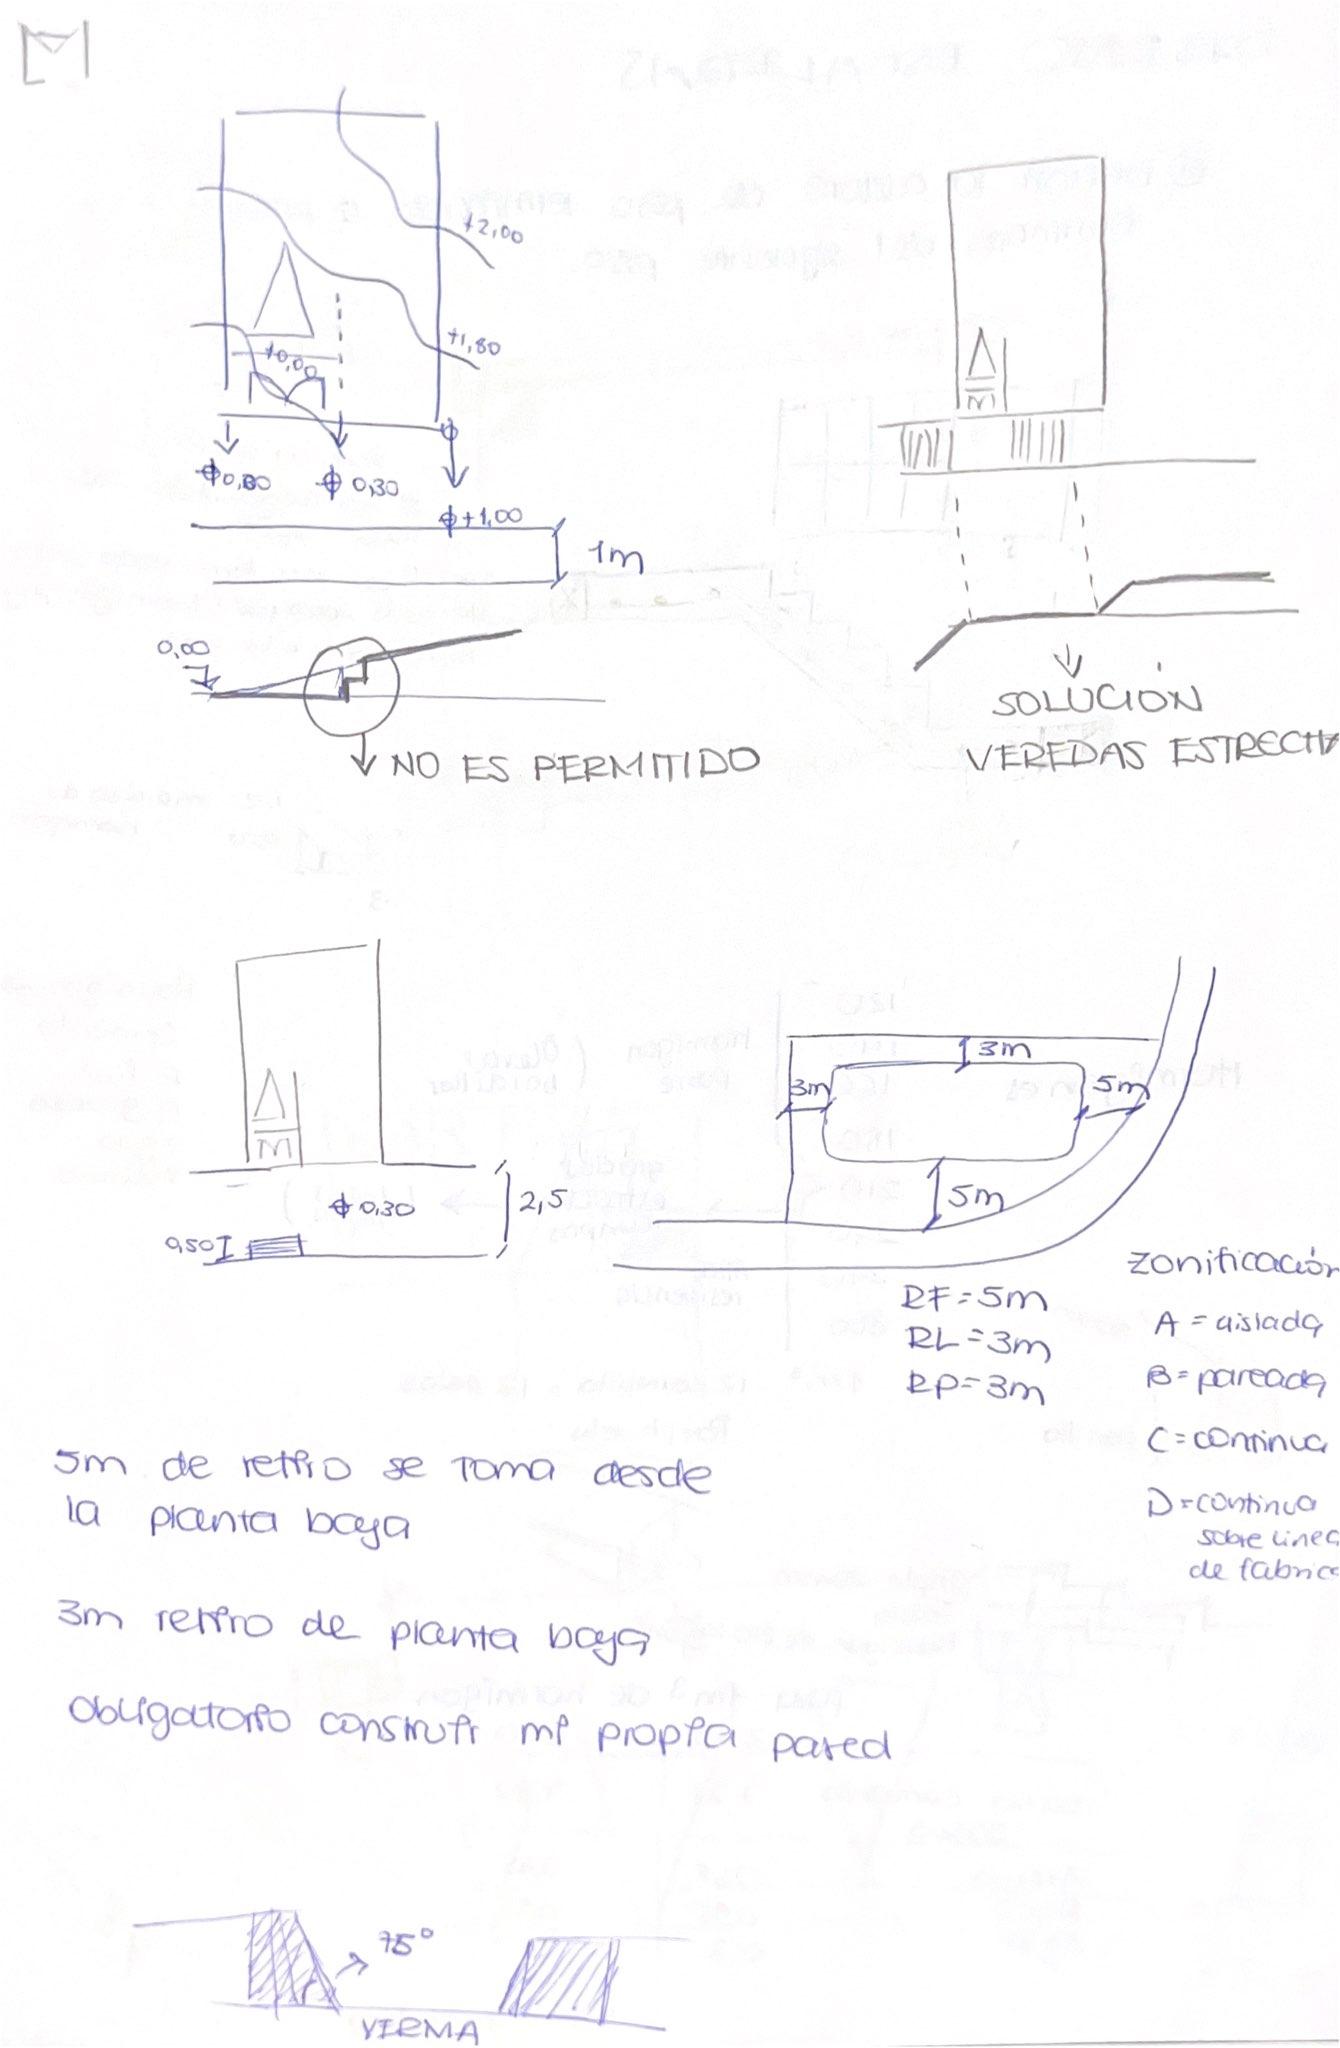 M
+2,00
+1,80
+0,00
0,30
+1,00
1m
0,00
NO ES PERMITIDO
M
SOLUCIÓN
VEREDAS ESTRECHA
M
0,30
2,5
0,50
3m
3m
5m
5m
RF=5m
RL=3m
RP=3m
zonificación
A = aislada
B = pareada
C = continua
D = continua
sobre linea
de fabrica
5m de retiro se toma desde
la planta baja
3m retiro de planta baja
Obligatorio construir mi propia pared
75°
YERMA